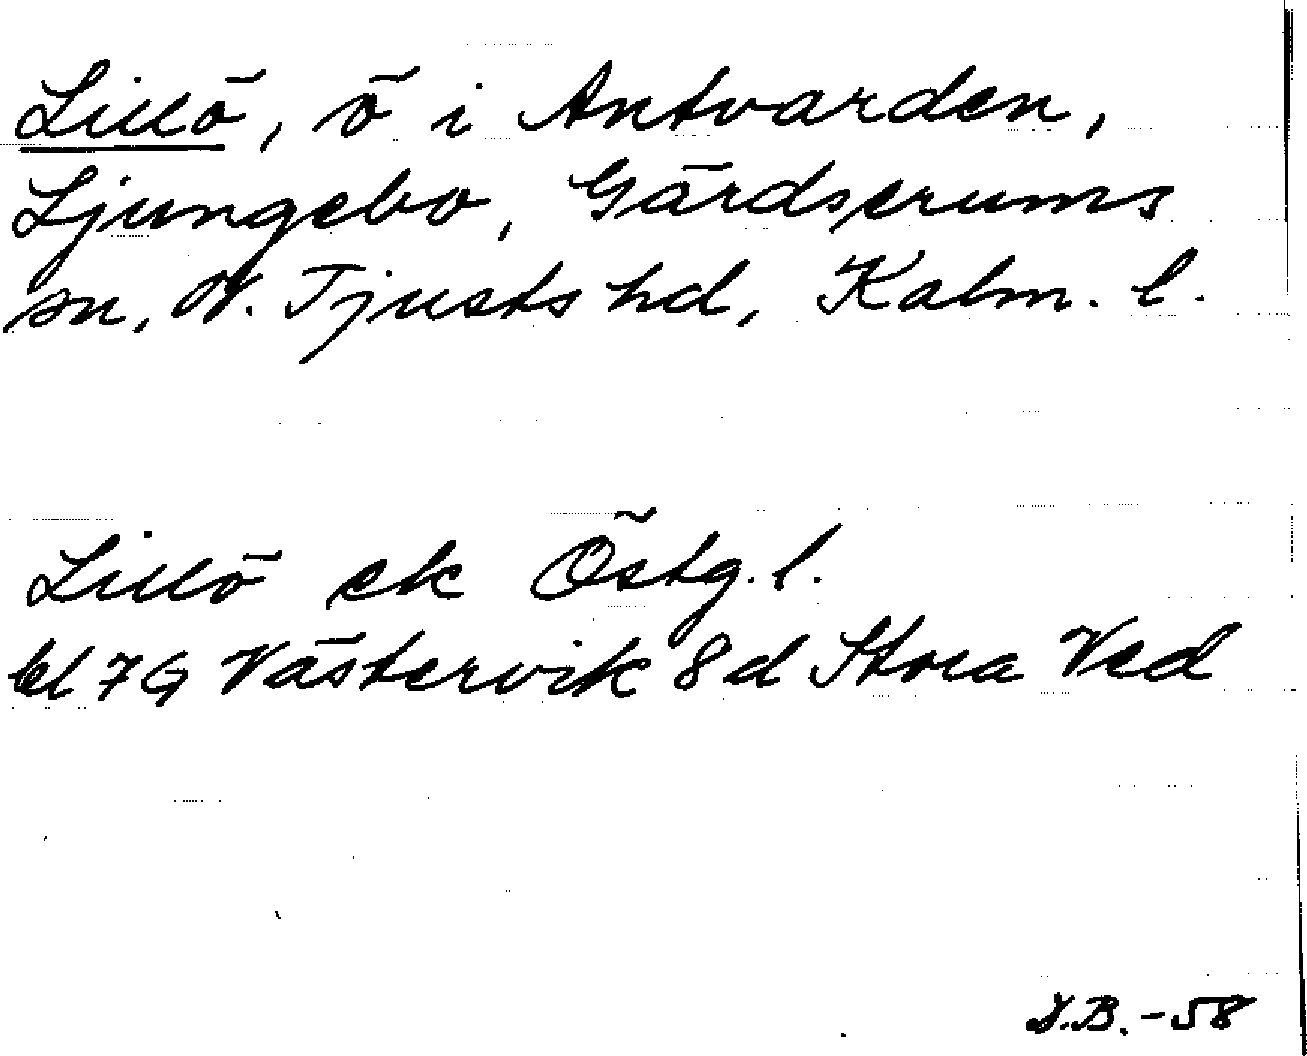 Lillö, ö i Antvarden,
Ljungebo, Gärdserums
sn, N. Tjusts hd, Kalm. l.
Lillö ek Östg. l.
bl 7G Västervik 8d Stora Ved
J.B. -58